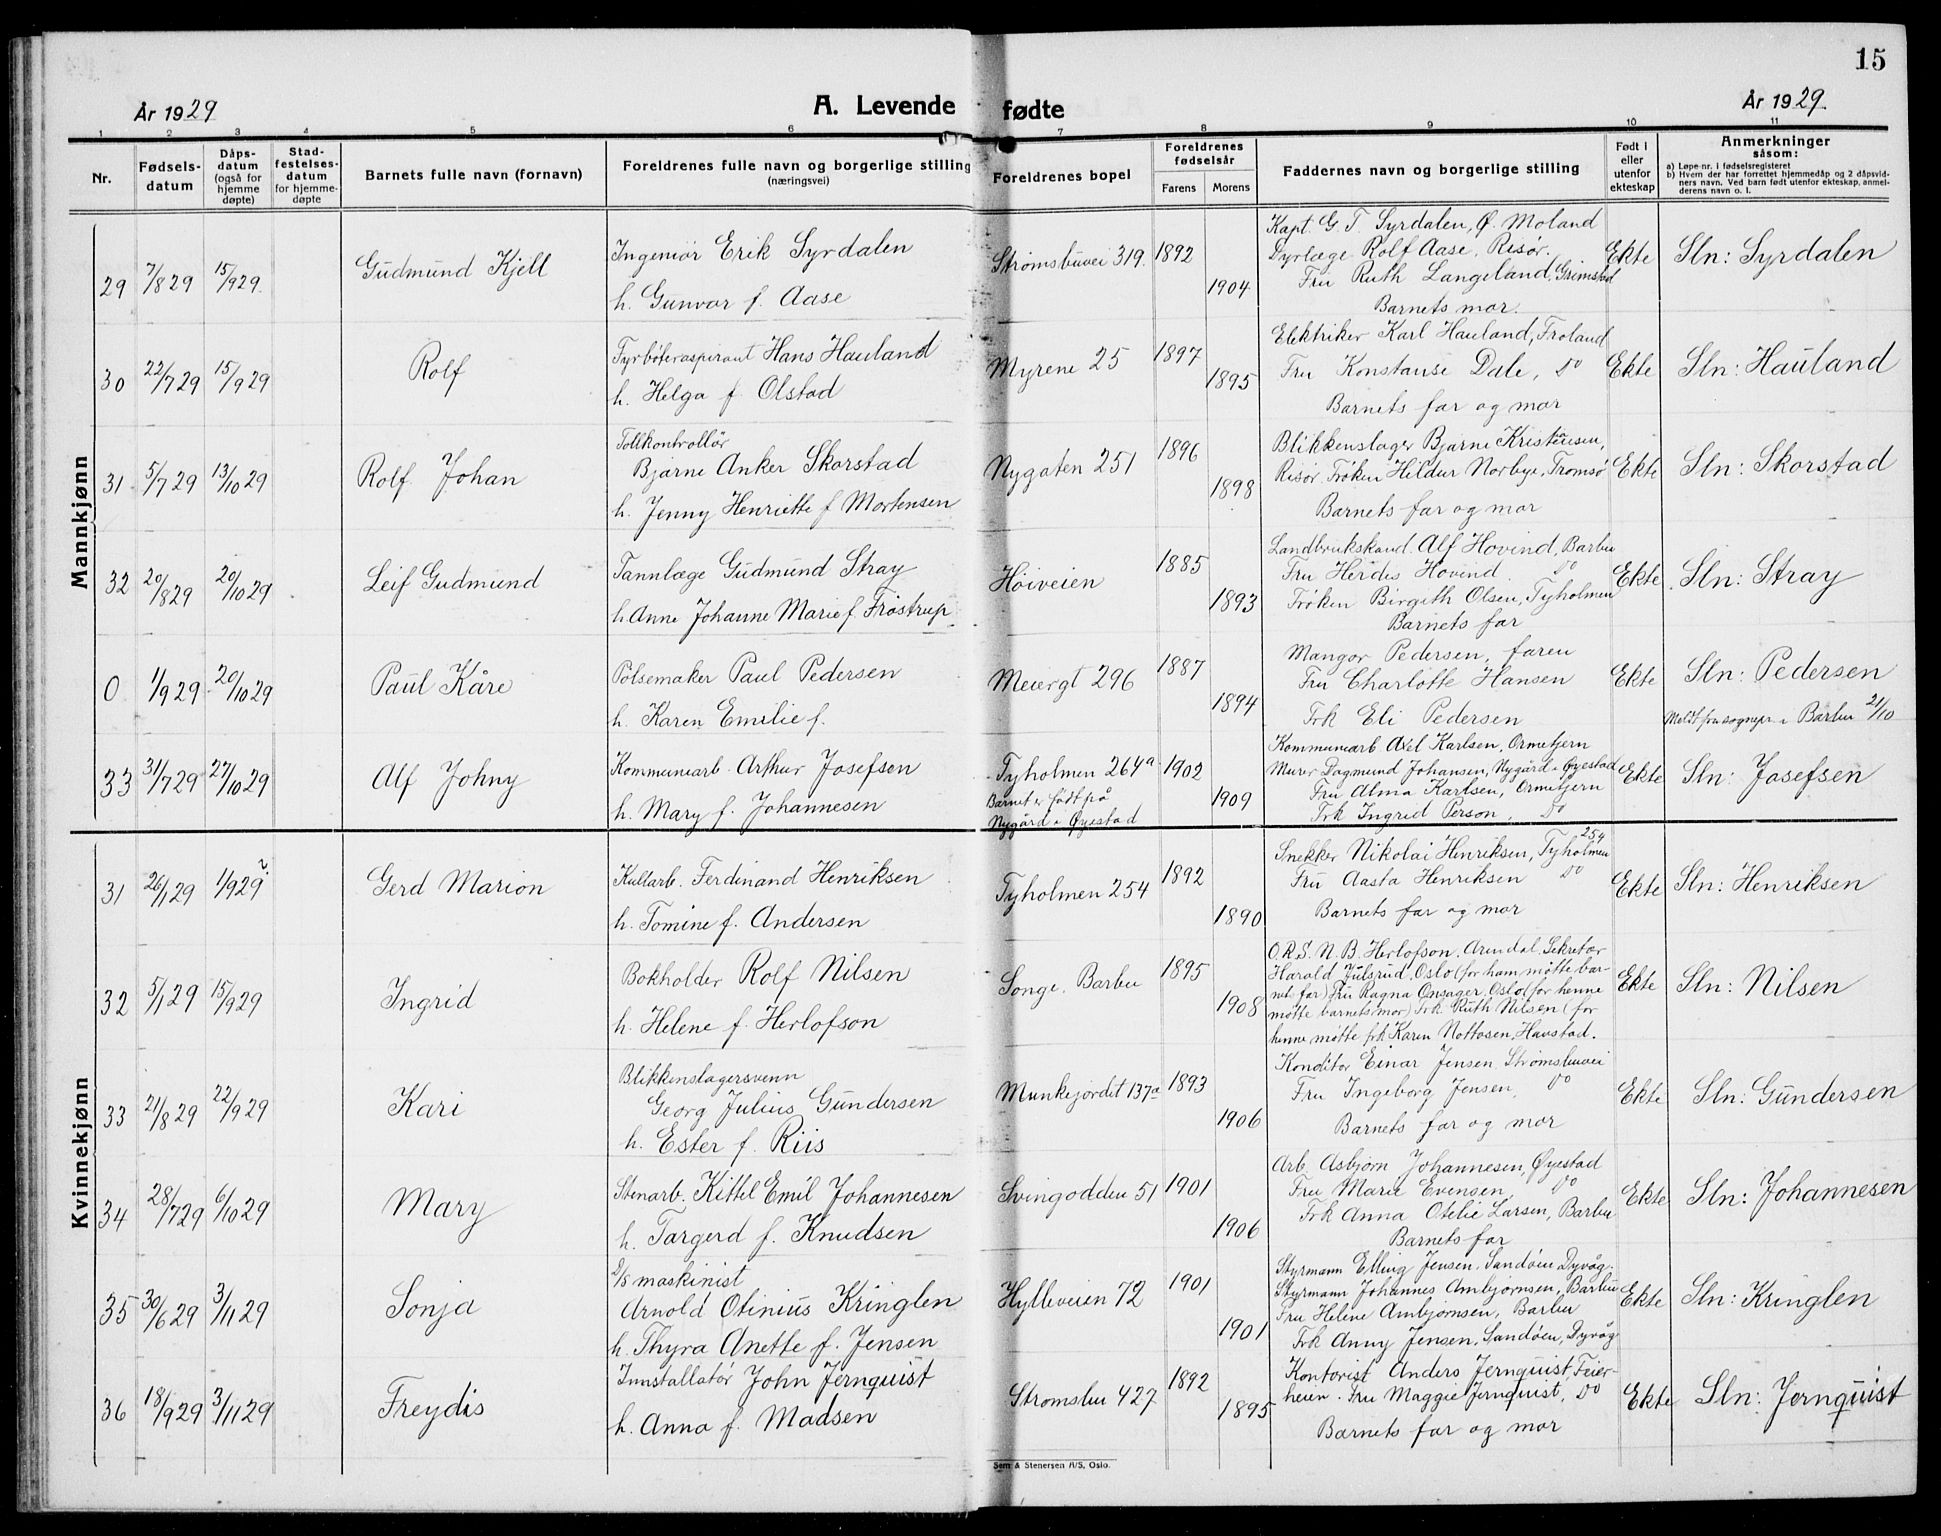 15
År 1929
A. Levende fødte
År 1929.
1 2 3 4 5 6 7 8 9 10 11
Nr.
Fødsels-
datum
Dåps-
datum
(også for
hjemme
døpte)
Stad-
festelses-
datum
for hjemme-
døpte
Barnets fulle navn (fornavn)
Foreldrenes fulle navn og borgerlige stilling
(næringsvei)
Foreldrenes bopel
Foreldrenes
fødselsår
Farens Morens
Faddernes navn og borgerlige stilling
Født i
eller
utenfor
ekteskap
Anmerkninger
såsom:
a) Løpe-nr. i fødselsregisteret
b) Hvem der har forrettet hjemmedåp og 2 dåpsvid-
ners navn. Ved barn født utenfor ekteskap, anmel-
derens navn o. l.
Mannkjønn
29 7/8 29 15/9 29. Gudmund Kjell
Ingeniør Erik Syrdalen
h. Gunvor f. Aase
Strømsbuvei 319. 1892 1904
Kapt. G. T. Syrdalen, Ø. Moland
Dyrlæge Rolf Aase, Risør.
Fru Ruth Langeland, Grimstad
Barnets mor.
Ekte Sln: Syrdalen
30 22/7 29 15/9 29 Rolf
Fyrbøteraspirant Hans Hauland
h. Helga f. Olstad
Myrene 25 1897 1895
Elektriker Karl Hauland, Froland
Fru Konstanse Dale, Do
Barnets far og mor
Ekte Sln: Hauland
31 5/7 29 13/10 29 Rolf Johan
Tollkontrollør
Bjarne Anker Skorstad
h. Jenny Henriette f Mortensen
Nygaten 251 1896 1898
Blikkenslager Bjarne Kristensen,
Risør. Frøken Hildur Norbye, Tromsø
Barnets far og mor
Ekte Sln: Skorstad
32 20/8 29 20/10 29 Leif Gudmund
Tannlæge Gudmund Stray
h. Anne Johanne Marie f. Frøstrup
Høiveien 1885 1893
Landbrukskand. Alf Hovind, Barbu
Fru Herdis Hovind Do
Frøken Birgith Olsen, Tyholmen
Barnets far
Ekte Sln: Stray
0 1/9 29 20/10 29 Paul Kåre
Pølsemaker Paul Pedersen
h. Karen Emilie f.
Meiergt 296 1887 1894
Mangor Pedersen, faren
Fru Charlotte Hansen
Frk Eli Pedersen
Ekte Sln: Pedersen
Meldt fra sognepr. i Barbu 21/10
33 31/7 29 27/10 29 Alf Johny
Kommunearb. Arthur Josefsen
h. Mary f. Johannesen
Tyholmen 264a
Barnet er født på
Nygård i Øyestad
1902 1909
Kommunearb Axel Karlsen, Ormetjern
Murer Dagmund Johansen, Nygård i Øyestad
Fru Alma Karlsen, Ormetjern
Frk Ingrid Person, Do
Ekte Sln: Josefsen
Kvinnekjønn
31 26/1 29 1/9 29? Gerd Marion
Kullarb. Ferdinand Henriksen
h. Tomine f. Andersen
Tyholmen 254 1892 1890
Snekker Nikolai Henriksen, Tyholmen 254
Fru Aasta Henriksen Do
Barnets far og mor
Ekte Sln: Henriksen
32 5/1 29 15/9 29 Ingrid
Bokholder Rolf Nilsen
h. Helene f. Herlofson
Songe. Barbu 1895 1908
O.R.S. N. B. Herlofson, Arendal, Sekretær
Harald Julsrud, Oslo (for ham møtte bar-
net far) Fru Ragna Onsager, Oslo (for henne
møtte barnets mor) Frk. Ruth Nilsen (for
henne møtte frk Karen Nottosen, Havstad.
Ekte Sln: Nilsen
33 21/8 29 22/9 29 Kari
Blikkenslagersvenn
Georg Julius Gundersen
h. Ester f. Riis
Munkejordet 137a 1893 1906
Konditor Einar Jensen, Strømsbuvei
Fru Ingeborg Jensen, Do
Barnets far og mor
Ekte Sln: Gundersen
34 28/7 29 6/10 29 Mary
Stenarb. Kittel Emil Johannesen
h. Targerd f. Knudsen
Svingodden 51 1901 1906
Arb. Asbjørn Johannesen, Øyestad
Fru Marie Evensen, Do
Frk Anna Otelie Larsen, Barbu
Barnets far
Ekte Sln: Johannesen
35 30/6 29 3/11 29 Sonja
D/S maskinist
Arnold Otinius Kringlen
h. Thyra Anette f. Jensen
Hylleveien 72 1901 1901
Styrmann Elling Jensen, Sandøen Dyvåg.
Styrmann Johannes Ambjørnsen, Barbu
Fru Helene Ambjørnsen, Barbu
Frk Anny Jensen, Sandøen, Dyvåg
Ekte Sln: Kringlen
36 18/9 29 3/11 29 Freydis
Innstallatør John Jernquist
h. Anna f. Madsen
Strømsbu 427 1892 1895
Kontorist Anders Jernquist, Feier-
heien. Fru Maggie Jernquist, Do
Barnets far og mor
Ekte Sln: Jernquist
Sem & Stenersen A/S, Oslo.